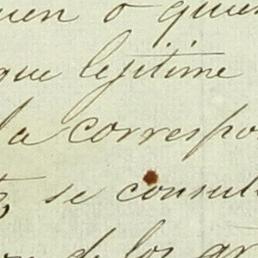 uen o quien
que legitime
la correspo
se consul
de los gr